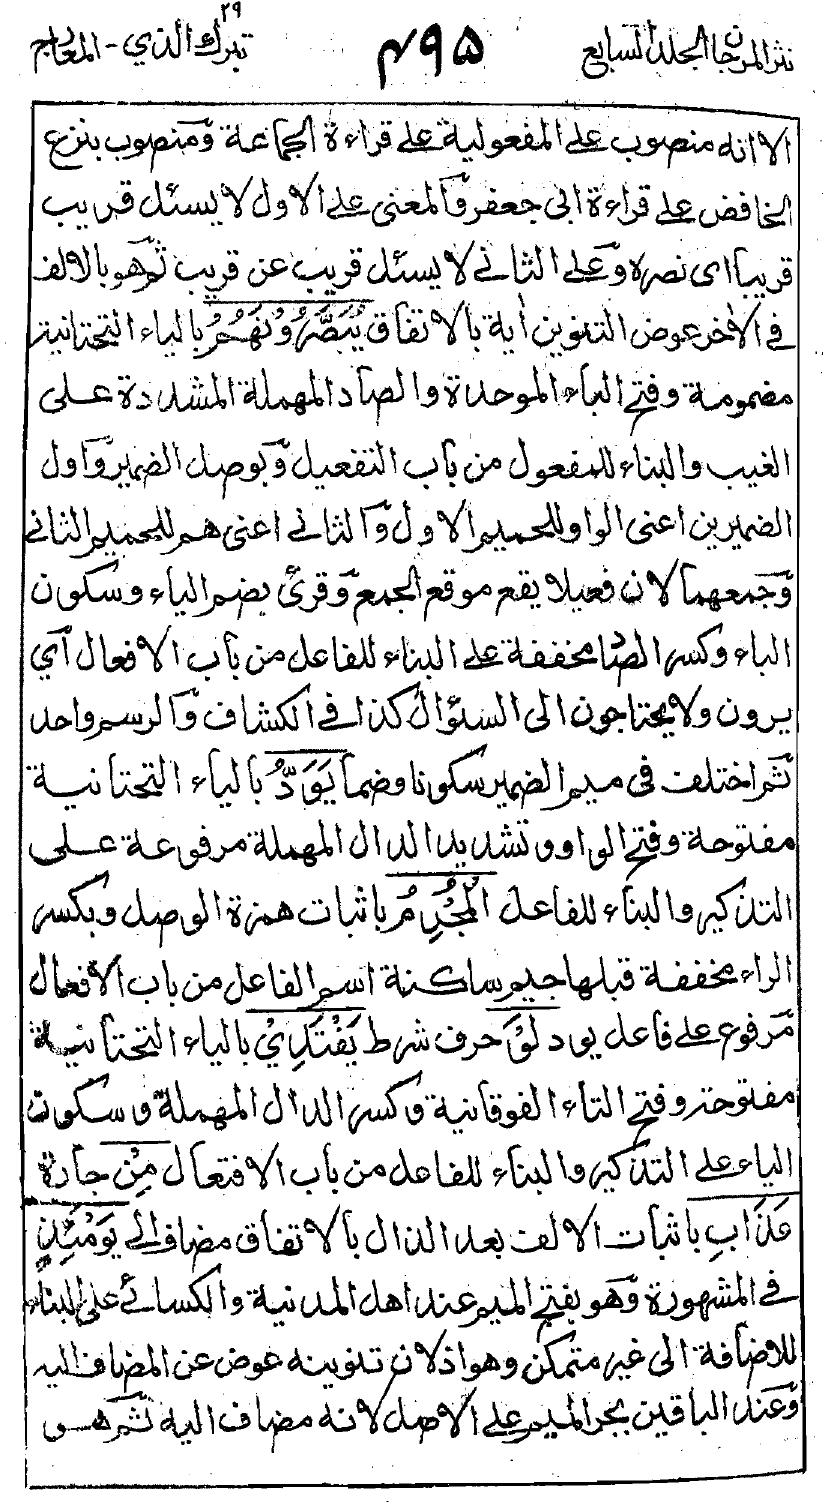 نثر المرجان الجلد السابع
٤٩٥
٢٩
تبرك الذي - المعارج
الا انه منصوب على المفعولية على قراءة الجماعة ومنصوب بنزع
الخافض على قراءة ابى جعفر والمعنى على الاول لا يسئل قريب
قريبا اى نصره وعلى الثانى لا يسئل قريب عن قريب ثم هو بالالف
فى الاخر عوض التنوين أية بالاتفاق يُبَصَّرُونَهُمْ بالياء التحتانية
مضمومة وفتح الباء الموحدة والصاد المهملة المشددة على
الغيب والبناء للمفعول من باب التفعيل وبوصل الضمير واول
الضميرين اعنى الواو للحميم الاول والثانى اعنى هم للحميم الثانى
وجمعهما لان فعيلا يقع موقع الجمع وقرئ بضم الياء وسكون
الباء وكسر الصاد مخففة على البناء للفاعل من باب الافعال أي
يرون ولا يحتاجون الى السئوال كذا فى الكشاف والرسم واحد
ثم اختلف فى ميم الضمير سكونا وضما يَوَدُّ بالياء التحتانية
مفتوحة وفتح الواو وتشديد الدال المهملة مرفوعة على
التذكير والبناء للفاعل الْمُجْرِمُ باثبات همزة الوصل وبكسر
الراء مخففة قبلها جيم ساكنة اسم الفاعل من باب الافعال
مرفوع على فاعل يود لَوْ حرف شرط يَفْتَدِيْ بالياء التحتانية
مفتوحة وفتح التاء الفوقانية وكسر الدال المهملة وسكون
الياء على التذكير والبناء للفاعل من باب الافتعال مِنْ جارة
عَذَابِ باثبات الالف بعد الذال بالاتفاق مضاف الى يَوْمَئِذٍ
فى المشهورة وهو بفتح الميم عند اهل المدنية والكسائى على البناء
للاضافة الى غير متمكن وهو اذ لان تنوينه عوض عن المضاف اليه
وعند الباقين بجر الميم على الاصل لانه مضاف اليه ثم هو